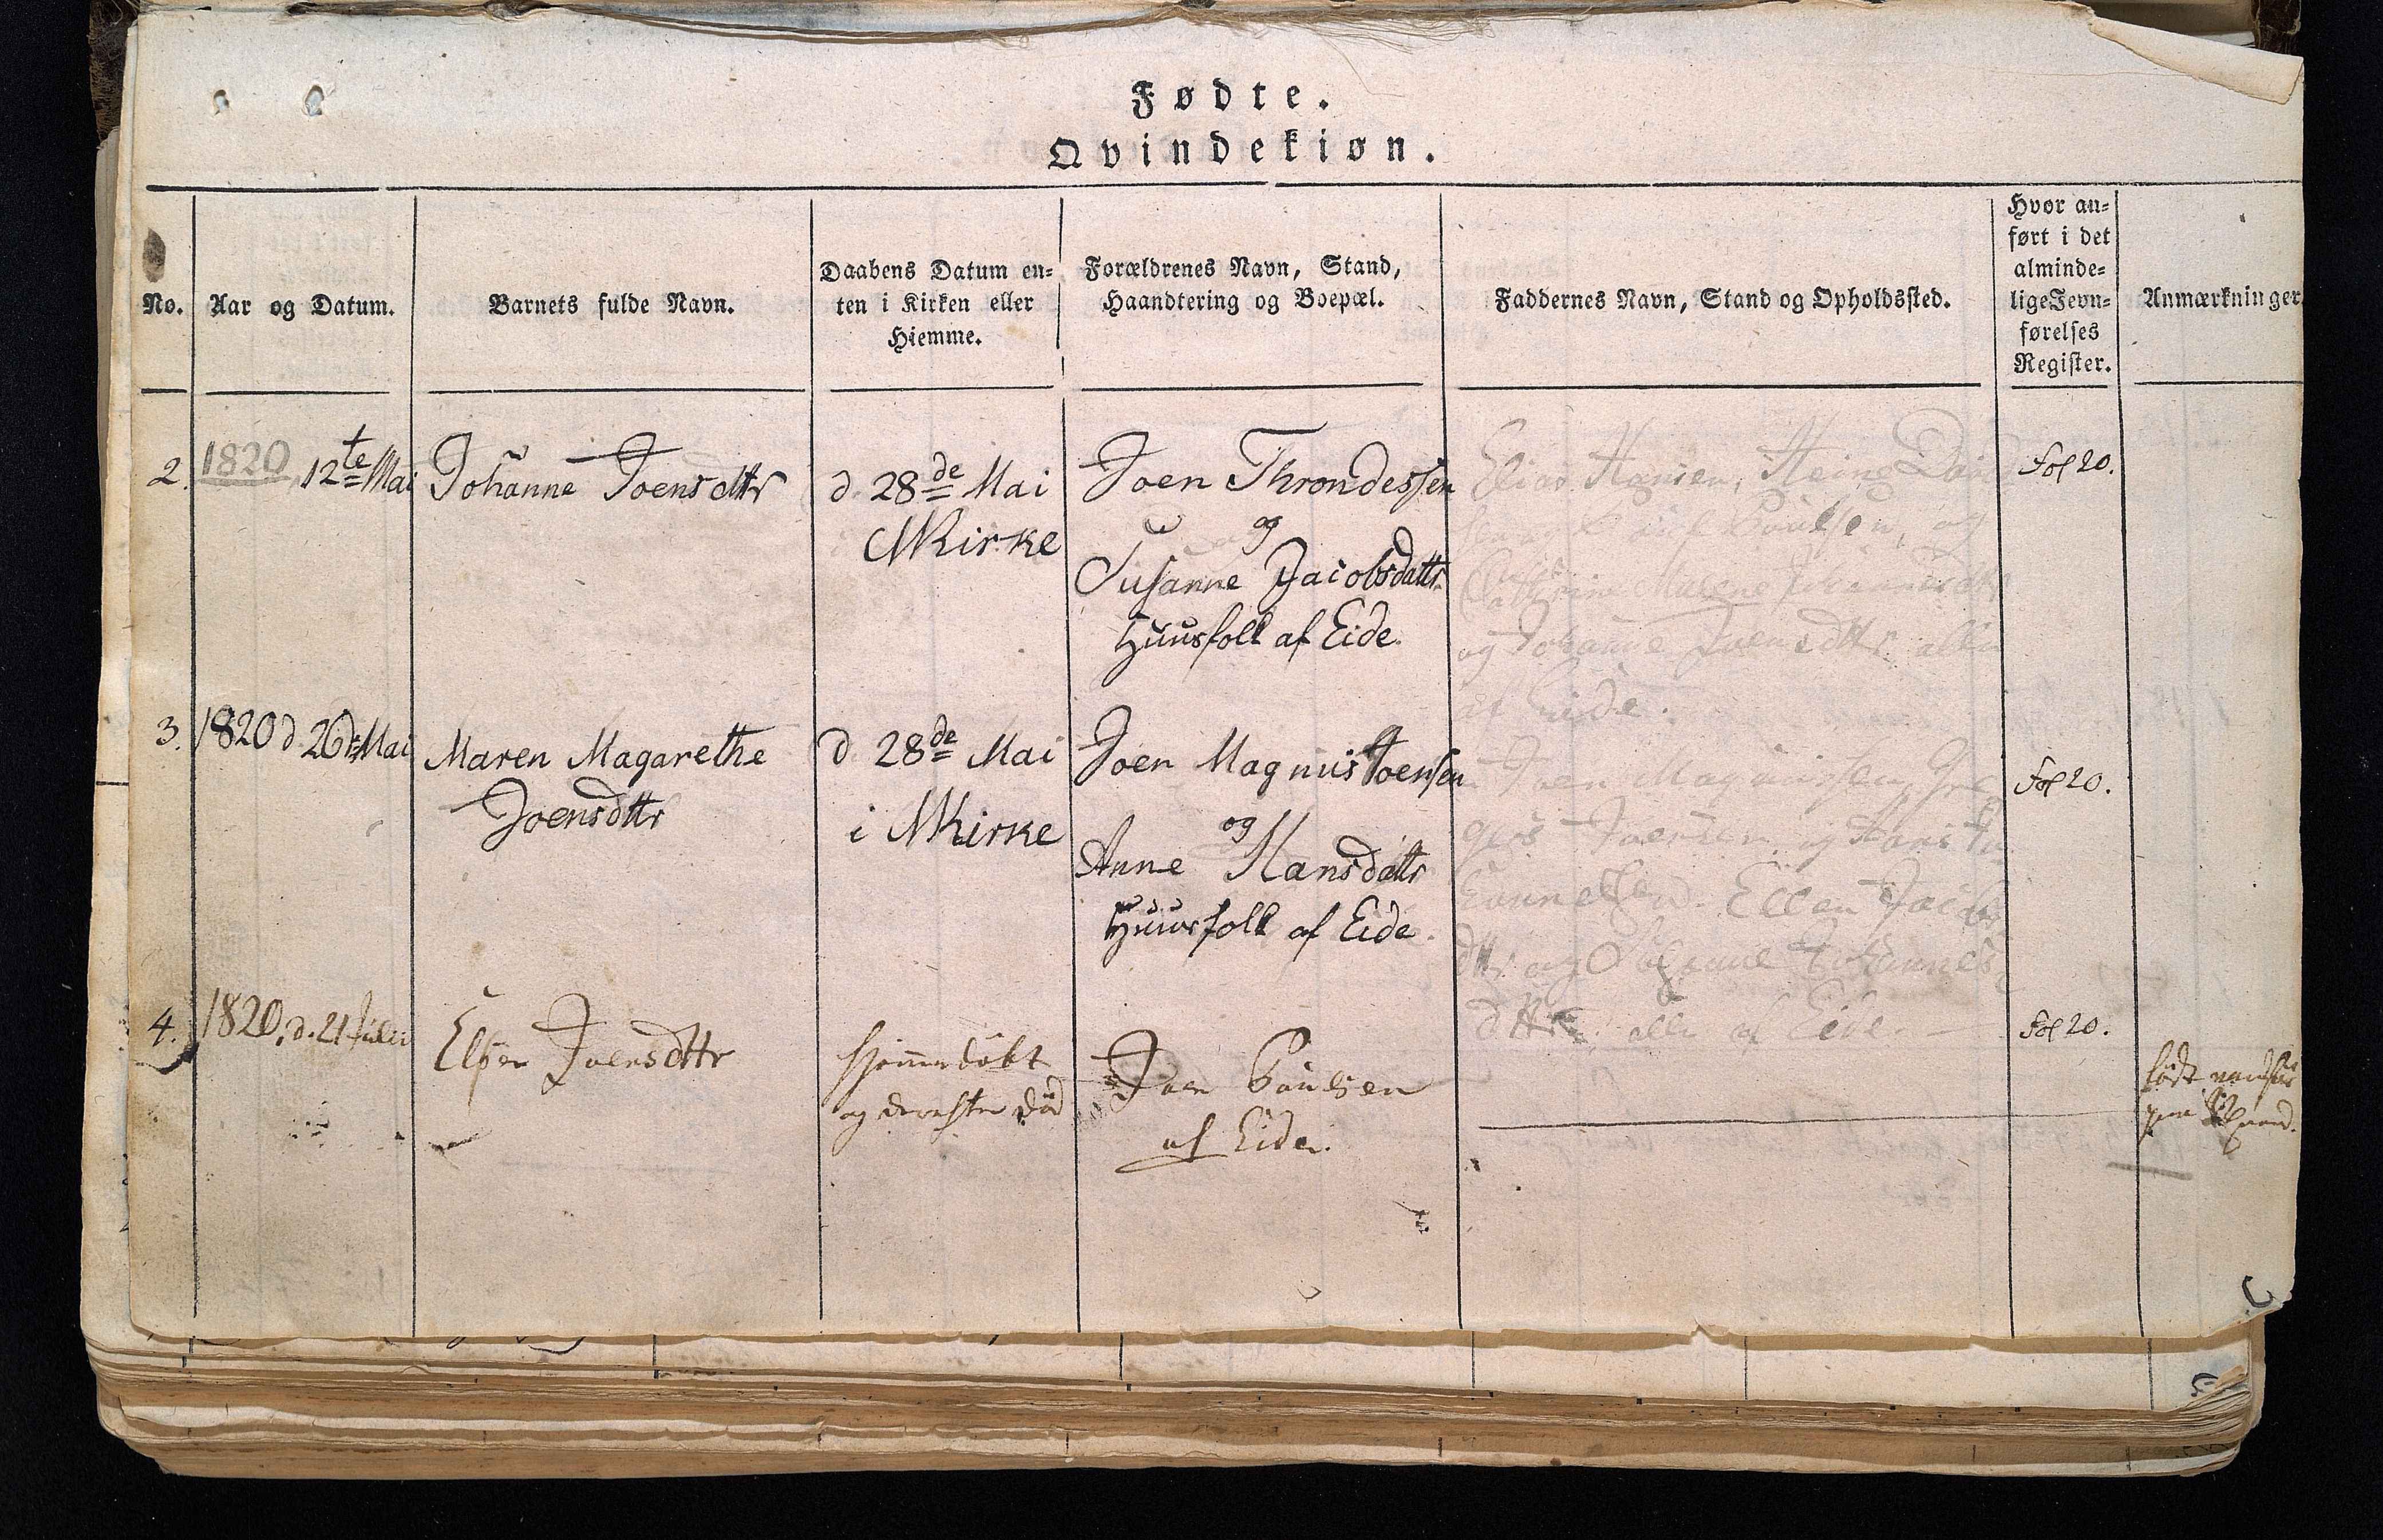 Fødte.
Qvindekiøn.
No.
Aar og Datum.
Barnets fulde Navn.
Daabens Datum en-
ten i Kirken eller
Hiemme.
Forældrenes Navn, Stand,
Haandtering og Boepæl.
Faddernes Navn, Stand og Opholdssted.
Hvor an-
ført i det
alminde-
lige Jevn-
førelses
Register.
Anmærkninger
2.
1820, 12te Mai
Johanne Joensdttr
d. 28de Mai
NKirke
Joen Throndessen
og
Susanne Jacobsdattr
Huusfolk af Eide.
Elias Hansen, Heine
Poulsen, og
Malene
og Johanne Joensdttr alle
af Eide.
Fol 20.
3.
1820 d. 26de Mai
Maren Magarethe
Joensdttr
d. 28de Mai
i NKirke
Joen Magnus Joensen
og
Anne Hansdattr
Huusfolk af Eide.
Joen Magnussen, Gre
gers Joensen, og Hans
Ellen Jacobs
dttr og Susanne Johannes
dttr alle af Eide.
Fol 20.
4.
1820, d. 21 Julii
Elsper Joensdttr
hjemmedøbt
og derefter død
Joen Poulsen
af Eide.
Fol 20.
født